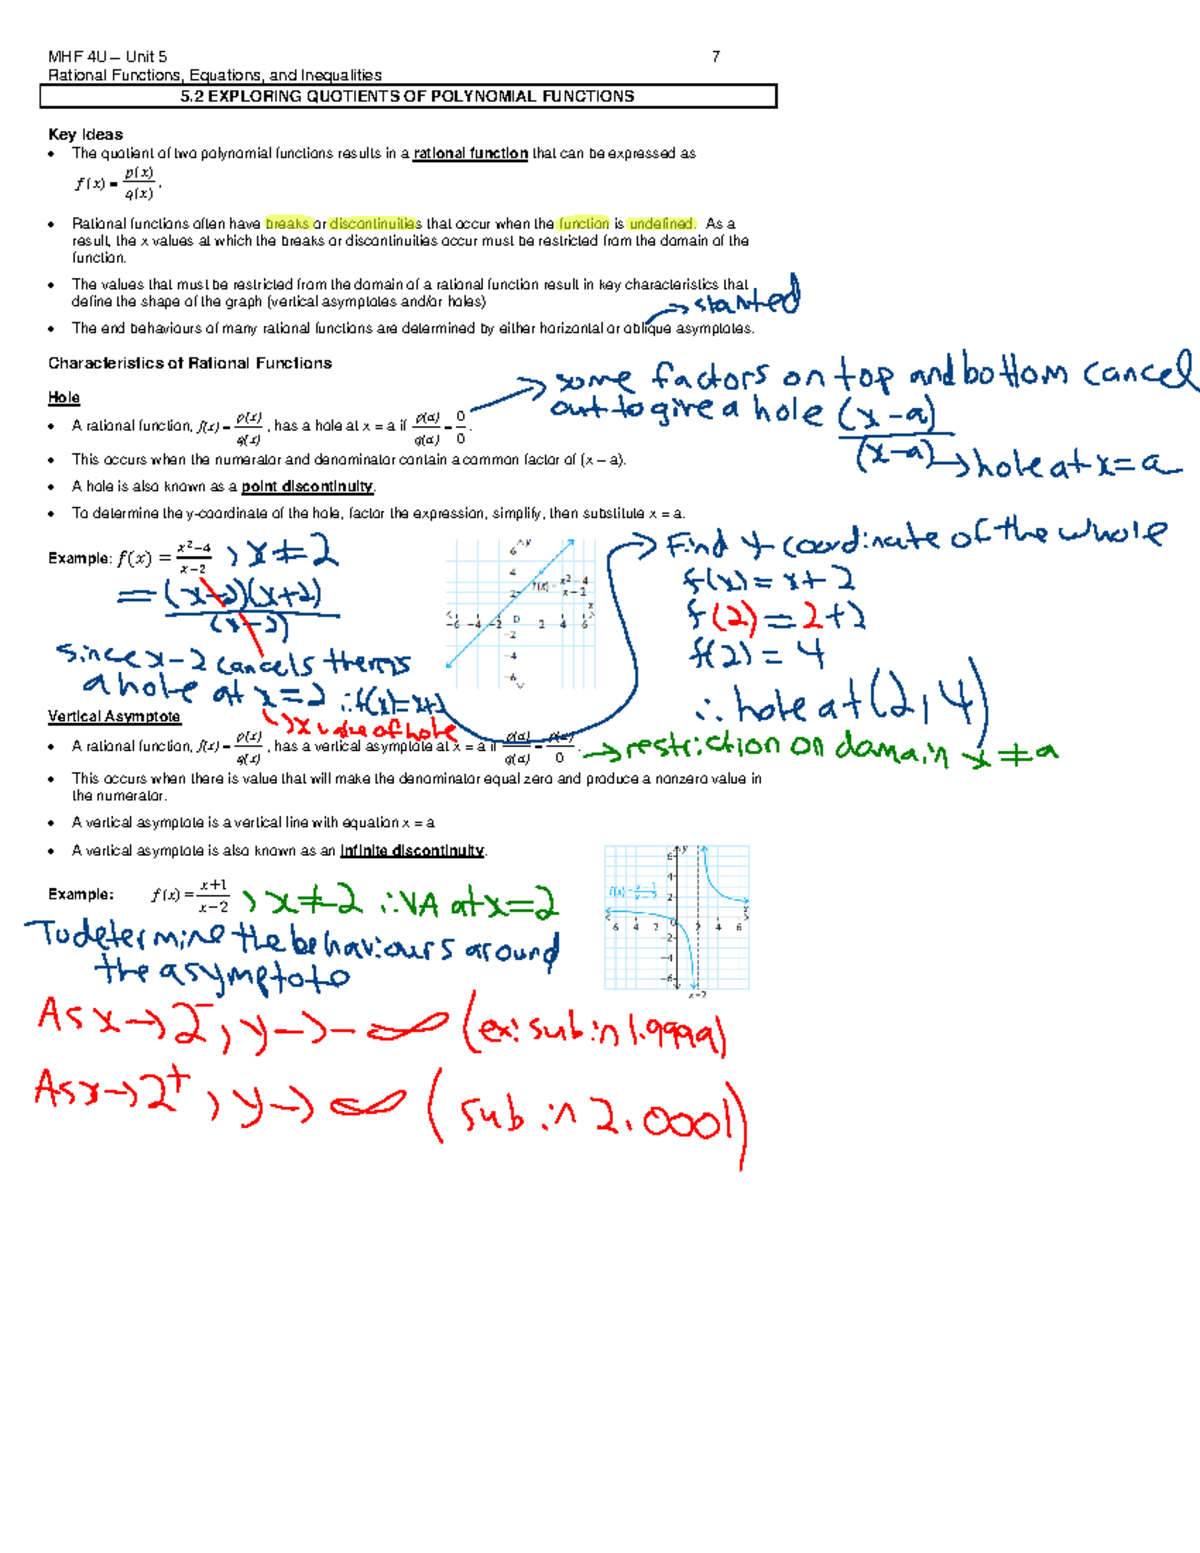 MHF 4U – Unit 5 7
Rational Functions, Equations, and Inequalities
5.2 EXPLORING QUOTIENTS OF POLYNOMIAL FUNCTIONS
Key Ideas
• The quotient of two polynomial functions results in a rational function that can be expressed as
f(x) = p(x)/q(x).
• Rational functions often have breaks or discontinuities that occur when the function is undefined. As a
result, the x values at which the breaks or discontinuities occur must be restricted from the domain of the
function.
• The values that must be restricted from the domain of a rational function result in key characteristics that
define the shape of the graph (vertical asymptotes and/or holes)
→ slanted
• The end behaviours of many rational functions are determined by either horizontal or oblique asymptotes.
Characteristics of Rational Functions
→ some factors on top and bottom cancel
out to give a hole (x-a)/(x-a) → hole at x = a
Hole
• A rational function, f(x) = p(x)/q(x), has a hole at x = a if p(a)/q(a) = 0/0.
• This occurs when the numerator and denominator contain a common factor of (x – a).
• A hole is also known as a point discontinuity.
• To determine the y-coordinate of the hole, factor the expression, simplify, then substitute x = a.
Example: f(x) = x²−4/x−2 , x ≠ 2
= (x-2)(x+2)/(x-2)
since x-2 cancels theres
a hole at x = 2 ∴ f(x) = x+2
↳ x value of hole
6 y
4
2
f(x) = x² − 4/x − 2
x
-6 -4 -2 0 2 4 6
-2
-4
-6
→ Find y coordinate of the whole
f(x) = x+2
f(2) = 2+2
f(2) = 4
∴ hole at (2, 4)
Vertical Asymptote
• A rational function, f(x) = p(x)/q(x), has a vertical asymptote at x = a if p(a)/q(a) = p(a)/0.
→ restriction on domain x ≠ a
• This occurs when there is value that will make the denominator equal zero and produce a nonzero value in
the numerator.
• A vertical asymptote is a vertical line with equation x = a
• A vertical asymptote is also known as an infinite discontinuity.
Example: f(x) = x+1/x−2 , x ≠ 2 ∴ VA at x = 2
To determine the behaviours around
the asymptote
6 y
4
2
x
6 4 2 0 2 4 6
-2
-4
-6
x=2
As x → 2⁻, y → -∞ (ex: sub in 1.9999)
As x → 2⁺, y → ∞ (sub in 2.0001)